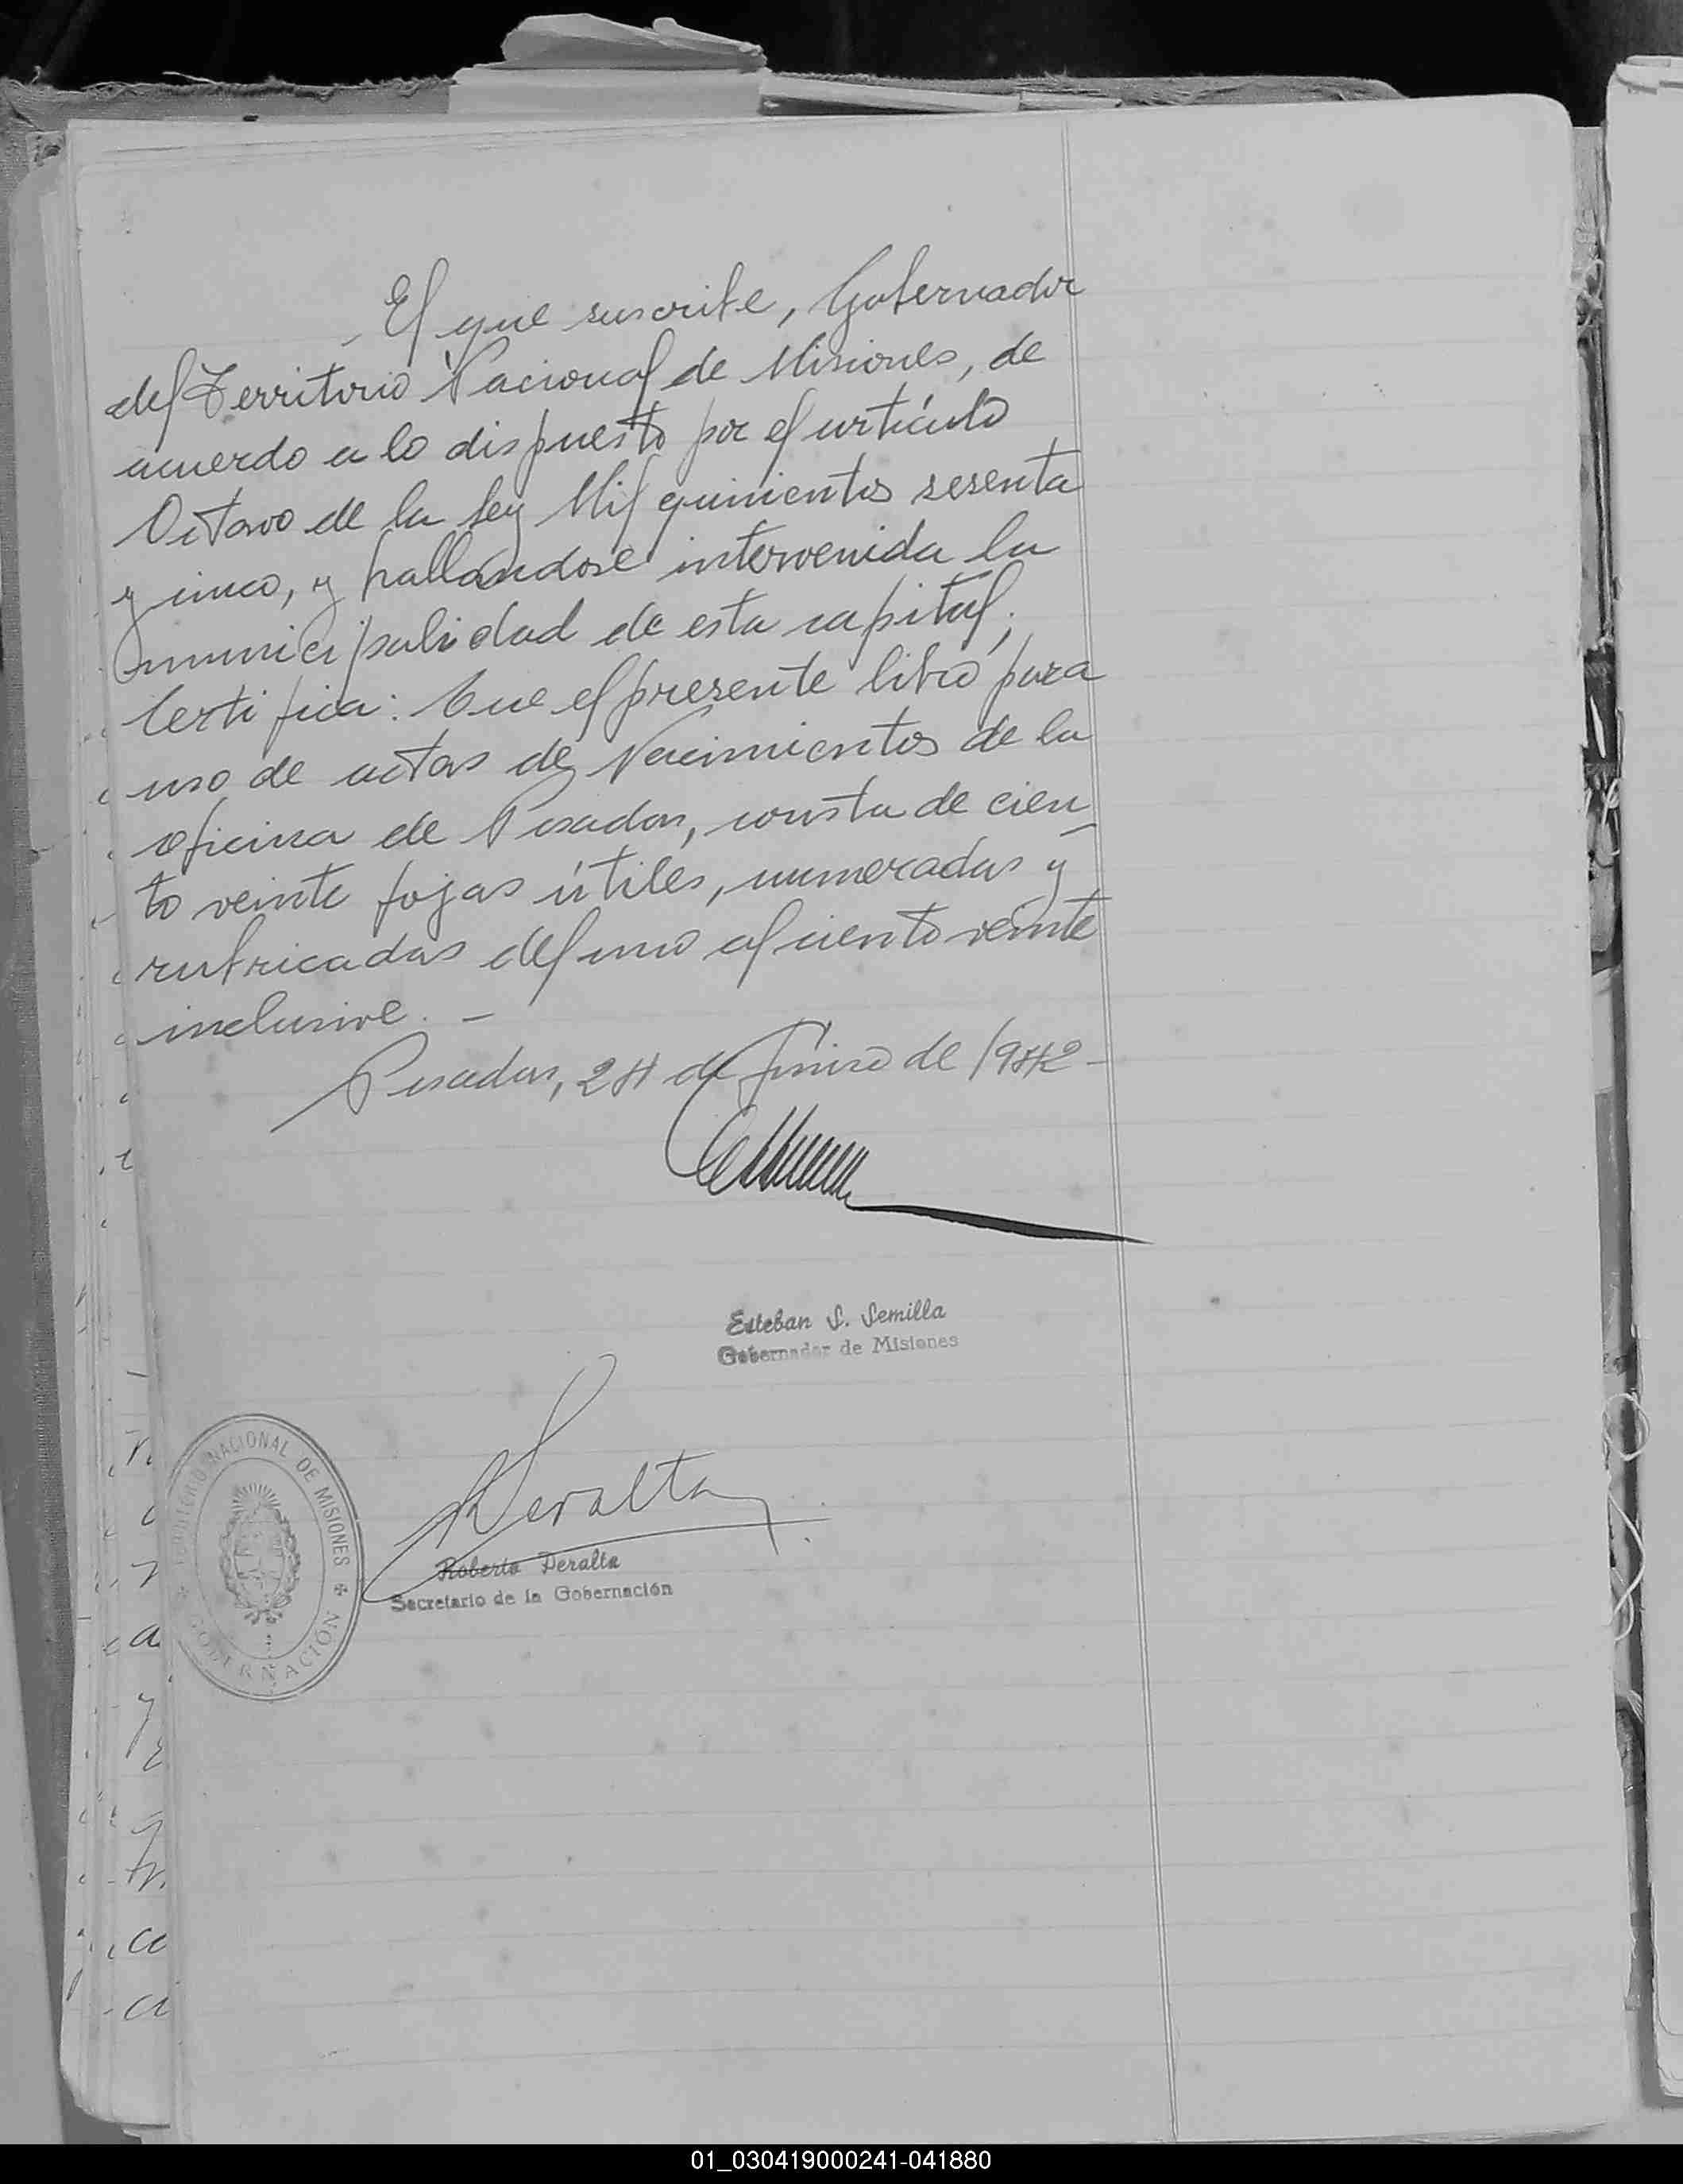 El que suscribe, Gobernador
del Territorio Nacional de Misiones, de
acuerdo a lo dispuesto por el artículo
Octavo de la Ley Mil quinientos sesenta
y cinco, y hallandose intervenida la
municipalidad de esta capital;
Certifica: Que el presente libro para
uso de actas de Nacimientos de la
oficina de Posadas, consta de cien
to veinte fojas útiles, numeradas y
rubricadas del uno al ciento veinte
inclusive. -
Posadas, 24 de Junio de 1942 -
Esteban S. Semilla
Gobernador de Misiones
Peralta
Roberto Peralta
Secretario de la Gobernación
TERRITORIO NACIONAL DE MISIONES
GOBERNACIÓN
01_030419000241-041880